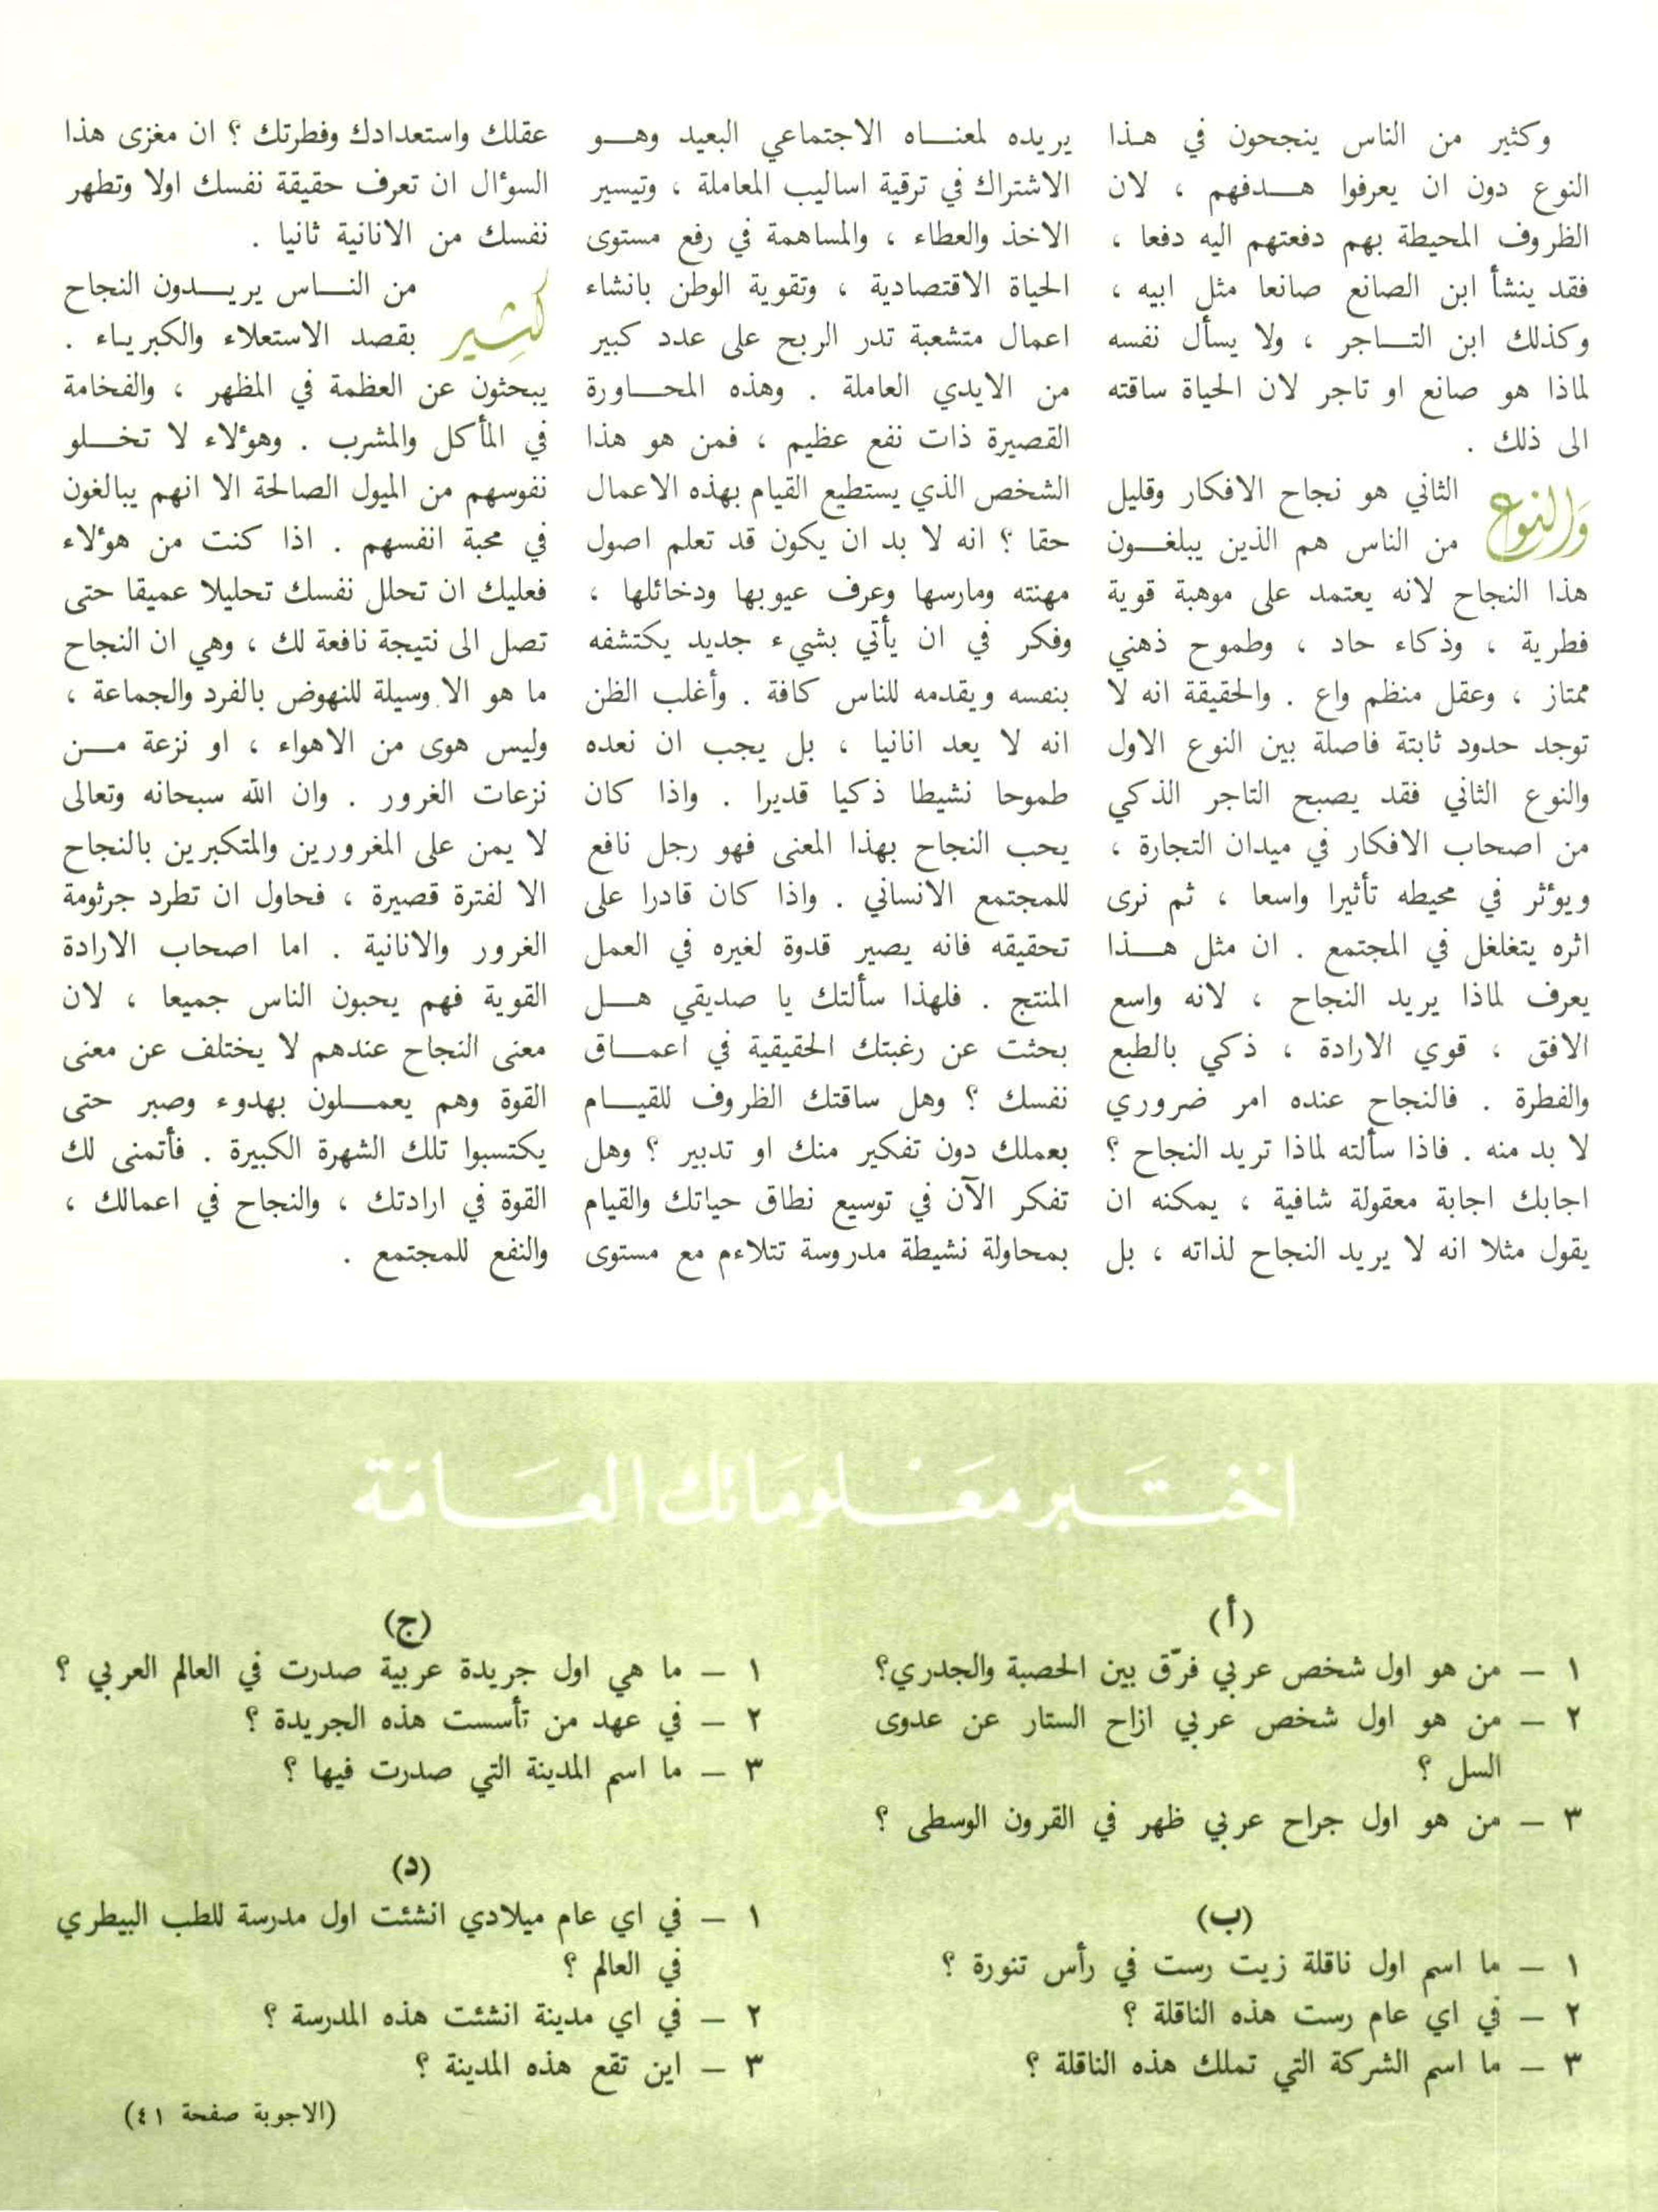 وكثير من الناس ينجحون في هذا
النوع دون ان يعرفوا هدفهم ، لان
الظروف المحيطة بهم دفعتهم اليه دفعا ،
فقد ينشأ ابن الصانع صانعا مثل ابيه ،
وكذلك ابن التاجر ، ولا يسأل نفسه
لماذا هو صانع او تاجر لان الحياة ساقته
الى ذلك .
والنوع الثاني هو نجاح الافكار وقليل
من الناس هم الذين يبلغون
هذا النجاح لانه يعتمد على موهبة قوية
فطرية ، وذكاء حاد ، وطموح ذهني
ممتاز ، وعقل منظم واع . والحقيقة انه لا
توجد حدود ثابتة فاصلة بين النوع الاول
والنوع الثاني فقد يصبح التاجر الذكي
من اصحاب الافكار في ميدان التجارة ،
ويؤثر في محيطه تأثيرا واسعا ، ثم نرى
اثره يتغلغل في المجتمع . ان مثل هذا
يعرف لماذا يريد النجاح ، لانه واسع
الافق ، قوي الارادة ، ذكي بالطبع
والفطرة . فالنجاح عنده امر ضروري
لا بد منه . فاذا سألته لماذا تريد النجاح ؟
اجابك اجابة معقولة شافية ، يمكنه ان
يقول مثلا انه لا يريد النجاح لذاته ، بل
يريده لمعناه الاجتماعي البعيد وهو
الاشتراك في ترقية اساليب المعاملة ، وتيسير
الاخذ والعطاء ، والمساهمة في رفع مستوى
الحياة الاقتصادية ، وتقوية الوطن بانشاء
اعمال متشعبة تدر الربح على عدد كبير
من الايدي العاملة . وهذه المحاورة
القصيرة ذات نفع عظيم ، فمن هو هذا
الشخص الذي يستطيع القيام بهذه الاعمال
حقا ؟ انه لا بد ان يكون قد تعلم اصول
مهنته ومارسها وعرف عيوبها ودخائلها ،
وفكر في ان يأتي بشيء جديد يكتشفه
بنفسه ويقدمه للناس كافة . وأغلب الظن
انه لا يعد انانيا ، بل يجب ان نعده
طموحا نشيطا ذكيا قديرا . واذا كان
يحب النجاح بهذا المعنى فهو رجل نافع
للمجتمع الانساني . واذا كان قادرا على
تحقيقه فانه يصير قدوة لغيره في العمل
المنتج . فلهذا سألتك يا صديقي هل
بحثت عن رغبتك الحقيقية في اعماق
نفسك ؟ وهل ساقتك الظروف للقيام
بعملك دون تفكير منك او تدبير ؟ وهل
تفكر الآن في توسيع نطاق حياتك والقيام
بمحاولة نشيطة مدروسة تتلاءم مع مستوى
عقلك واستعدادك وفطرتك ؟ ان مغزى هذا
السؤال ان تعرف حقيقة نفسك اولا وتطهر
نفسك من الانانية ثانيا .
كثير من الناس يريدون النجاح
بقصد الاستعلاء والكبرياء .
يبحثون عن العظمة في المظهر ، والفخامة
في المأكل والمشرب . وهؤلاء لا تخلو
نفوسهم من الميول الصالحة الا انهم يبالغون
في محبة انفسهم . اذا كنت من هؤلاء
فعليك ان تحلل نفسك تحليلا عميقا حتى
تصل الى نتيجة نافعة لك ، وهي ان النجاح
ما هو الا وسيلة للنهوض بالفرد والجماعة ،
وليس هوى من الاهواء ، او نزعة من
نزعات الغرور . وان الله سبحانه وتعالى
لا يمن على المغرورين والمتكبرين بالنجاح
الا لفترة قصيرة ، فحاول ان تطرد جرثومة
الغرور والانانية . اما اصحاب الارادة
القوية فهم يحبون الناس جميعا ، لان
معنى النجاح عندهم لا يختلف عن معنى
القوة وهم يعملون بهدوء وصبر حتى
يكتسبوا تلك الشهرة الكبيرة . فأتمنى لك
القوة في ارادتك ، والنجاح في اعمالك ،
والنفع للمجتمع .
اختبر معلوماتك العامة
(أ)
١ – من هو اول شخص عربي فرّق بين الحصبة والجدري؟
٢ – من هو اول شخص عربي ازاح الستار عن عدوى
السل ؟
٣ – من هو اول جراح عربي ظهر في القرون الوسطى ؟
(ب)
١ – ما اسم اول ناقلة زيت رست في رأس تنورة ؟
٢ – في اي عام رست هذه الناقلة ؟
٣ – ما اسم الشركة التي تملك هذه الناقلة ؟
(ج)
١ – ما هي اول جريدة عربية صدرت في العالم العربي ؟
٢ – في عهد من تأسست هذه الجريدة ؟
٣ – ما اسم المدينة التي صدرت فيها ؟
(د)
١ – في اي عام ميلادي انشئت اول مدرسة للطب البيطري
في العالم ؟
٢ – في اي مدينة انشئت هذه المدرسة ؟
٣ – اين تقع هذه المدينة ؟
(الاجوبة صفحة ٤١)